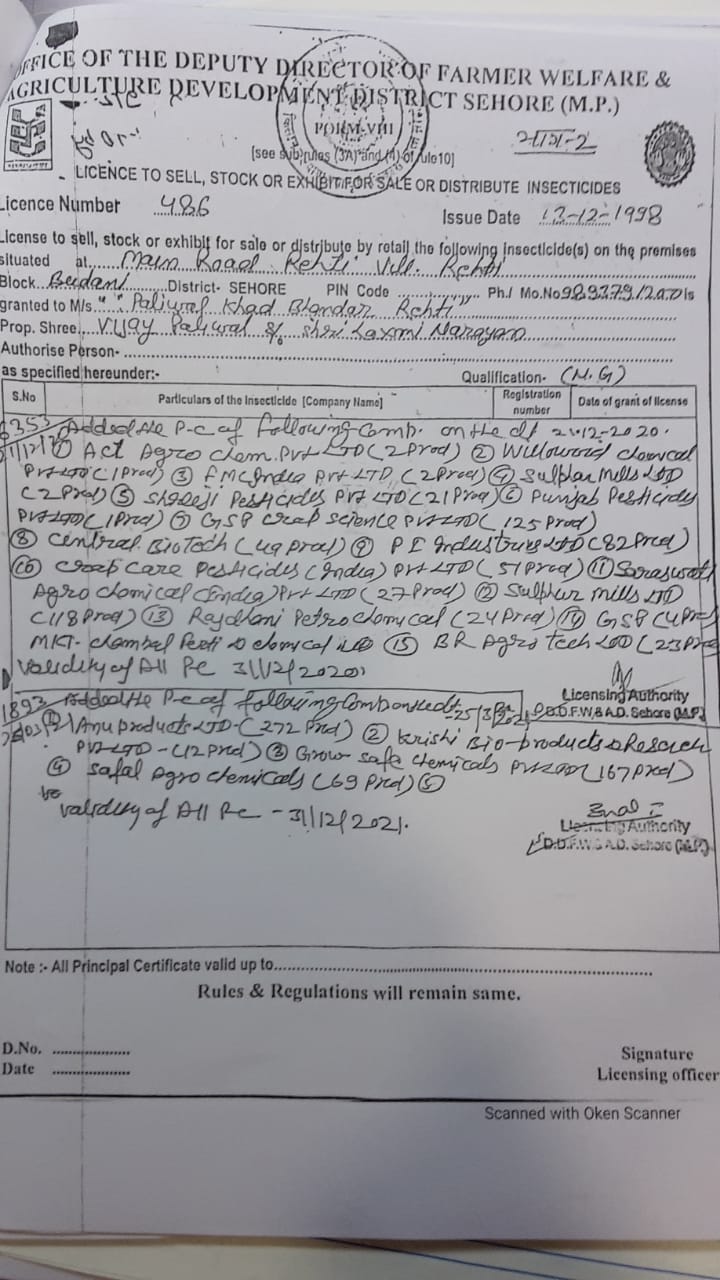 OFFICE OF THE DEPUTY DIRECTOR OF FARMER WELFARE &
AGRICULTURE DEVELOPMENT DISTRICT SEHORE (M.P.)
FORM-VIII
भाग-2
[see sub rules (3A) and (4) of rule10]
LICENCE TO SELL, STOCK OR EXHIBIT FOR SALE OR DISTRIBUTE INSECTICIDES
Licence Number 486
Issue Date 13-12-1998
License to sell, stock or exhibit for sale or distribute by retail the following insecticide(s) on the premises
situated at Main Road Rehti Vill. Rehti
Block Budani District- SEHORE PIN Code Ph./ Mo.No is
granted to M/s Paliwal Khad Bhandar Rehti
Prop. Shree. Vijay Paliwal S/o Shri Laxmi Narayan
Authorise Person-
as specified hereunder:- Qualification- (N.G)
S.No Particulars of the Insecticide [Company Name] Registration number Date of grant of license
6353 Added the P.C of following Comp. on the dt 21.12.2020.
① Act Agro chem. Pvt LTD (2 Prod) ② Willowood chemical
Pvt LTD (1 Prod) ③ FMC India Pvt LTD (2 Prod) ④ Sulphar Mills LTD
(2 Prod) ⑤ Shreeji Pesticides Pvt LTD (21 Prod) ⑥ Punjab Pesticides
Pvt LTD (1 Prod) ⑦ GSP Crop science Pvt LTD (125 Prod)
⑧ Central BioTech (49 Prod) ⑨ P I Industries LTD (82 Prod)
⑩ Crop Care Pesticides (India) Pvt LTD (51 Prod) ⑪ Saraswati
Agro chemical (India) Pvt LTD (27 Prod) ⑫ Sulphur mills LTD
(118 Prod) ⑬ Rajdhani Petrochemical (24 Prod) ⑭ GSP (4 Prod)
MKT- chambal Perti chemical ⑮ BR Agro Tech LTD (23 Prod)
Validity of All Pc 31/12/2020
Licensing Authority
D.D.F.W.& A.D. Sehore (M.P.)
1893 Added the P.C of following Comp on the dt 25/3/2021
① Anu products LTD - (272 Prod) ② Krishi Bio-products & Research
Pvt LTD - (12 Prod) ③ Grow safe chemicals Pvt LTD (167 Prod)
④ Safal Agro chemicals (69 Prod) ⑤
Validity of All Pc - 31/12/2021.
Licensing Authority
D.D.F.W & A.D. Sehore (M.P.)
Note :- All Principal Certificate valid up to
Rules & Regulations will remain same.
D.No.
Date
Signature
Licensing officer
Scanned with Oken Scanner